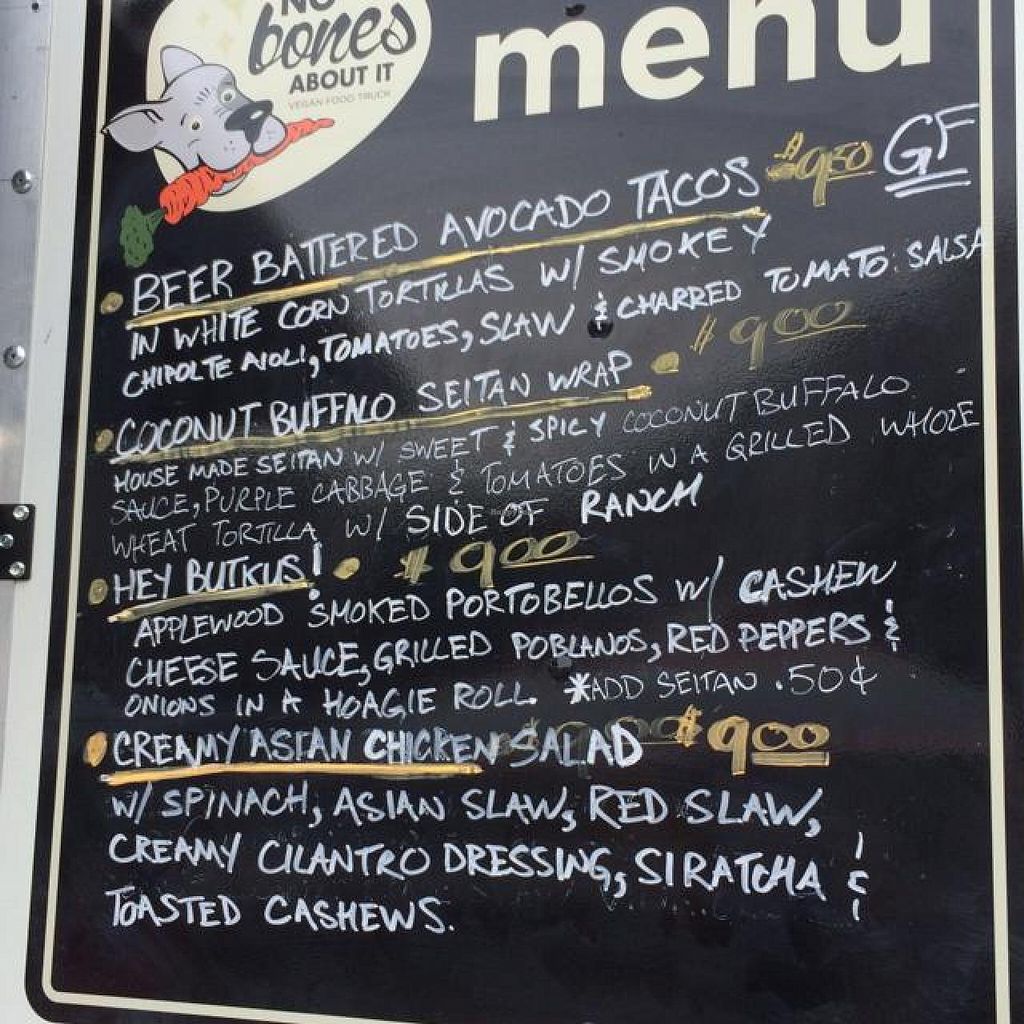 NO
bones
ABOUT IT
VEGAN FOOD TRUCK
menu
BEER BATTERED AVOCADO TACOS $9.50 GF
IN WHITE CORN TORTILLAS W/ SMOKEY
CHIPOLTE AIOLI, TOMATOES, SLAW & CHARRED TOMATO SALSA
COCONUT BUFFALO SEITAN WRAP $9.00
HOUSE MADE SEITAN W/ SWEET & SPICY COCONUT BUFFALO
SAUCE, PURPLE CABBAGE & TOMATOES IN A GRILLED WHOLE
WHEAT TORTILLA W/ SIDE OF RANCH
HEY BUTKUS! $9.00
APPLEWOOD SMOKED PORTOBELLOS W/ CASHEW
CHEESE SAUCE, GRILLED POBLANOS, RED PEPPERS &
ONIONS IN A HOAGIE ROLL. *ADD SEITAN .50¢
CREAMY ASIAN CHICKEN SALAD $9.00
W/ SPINACH, ASIAN SLAW, RED SLAW,
CREAMY CILANTRO DRESSING, SIRATCHA &
TOASTED CASHEWS.